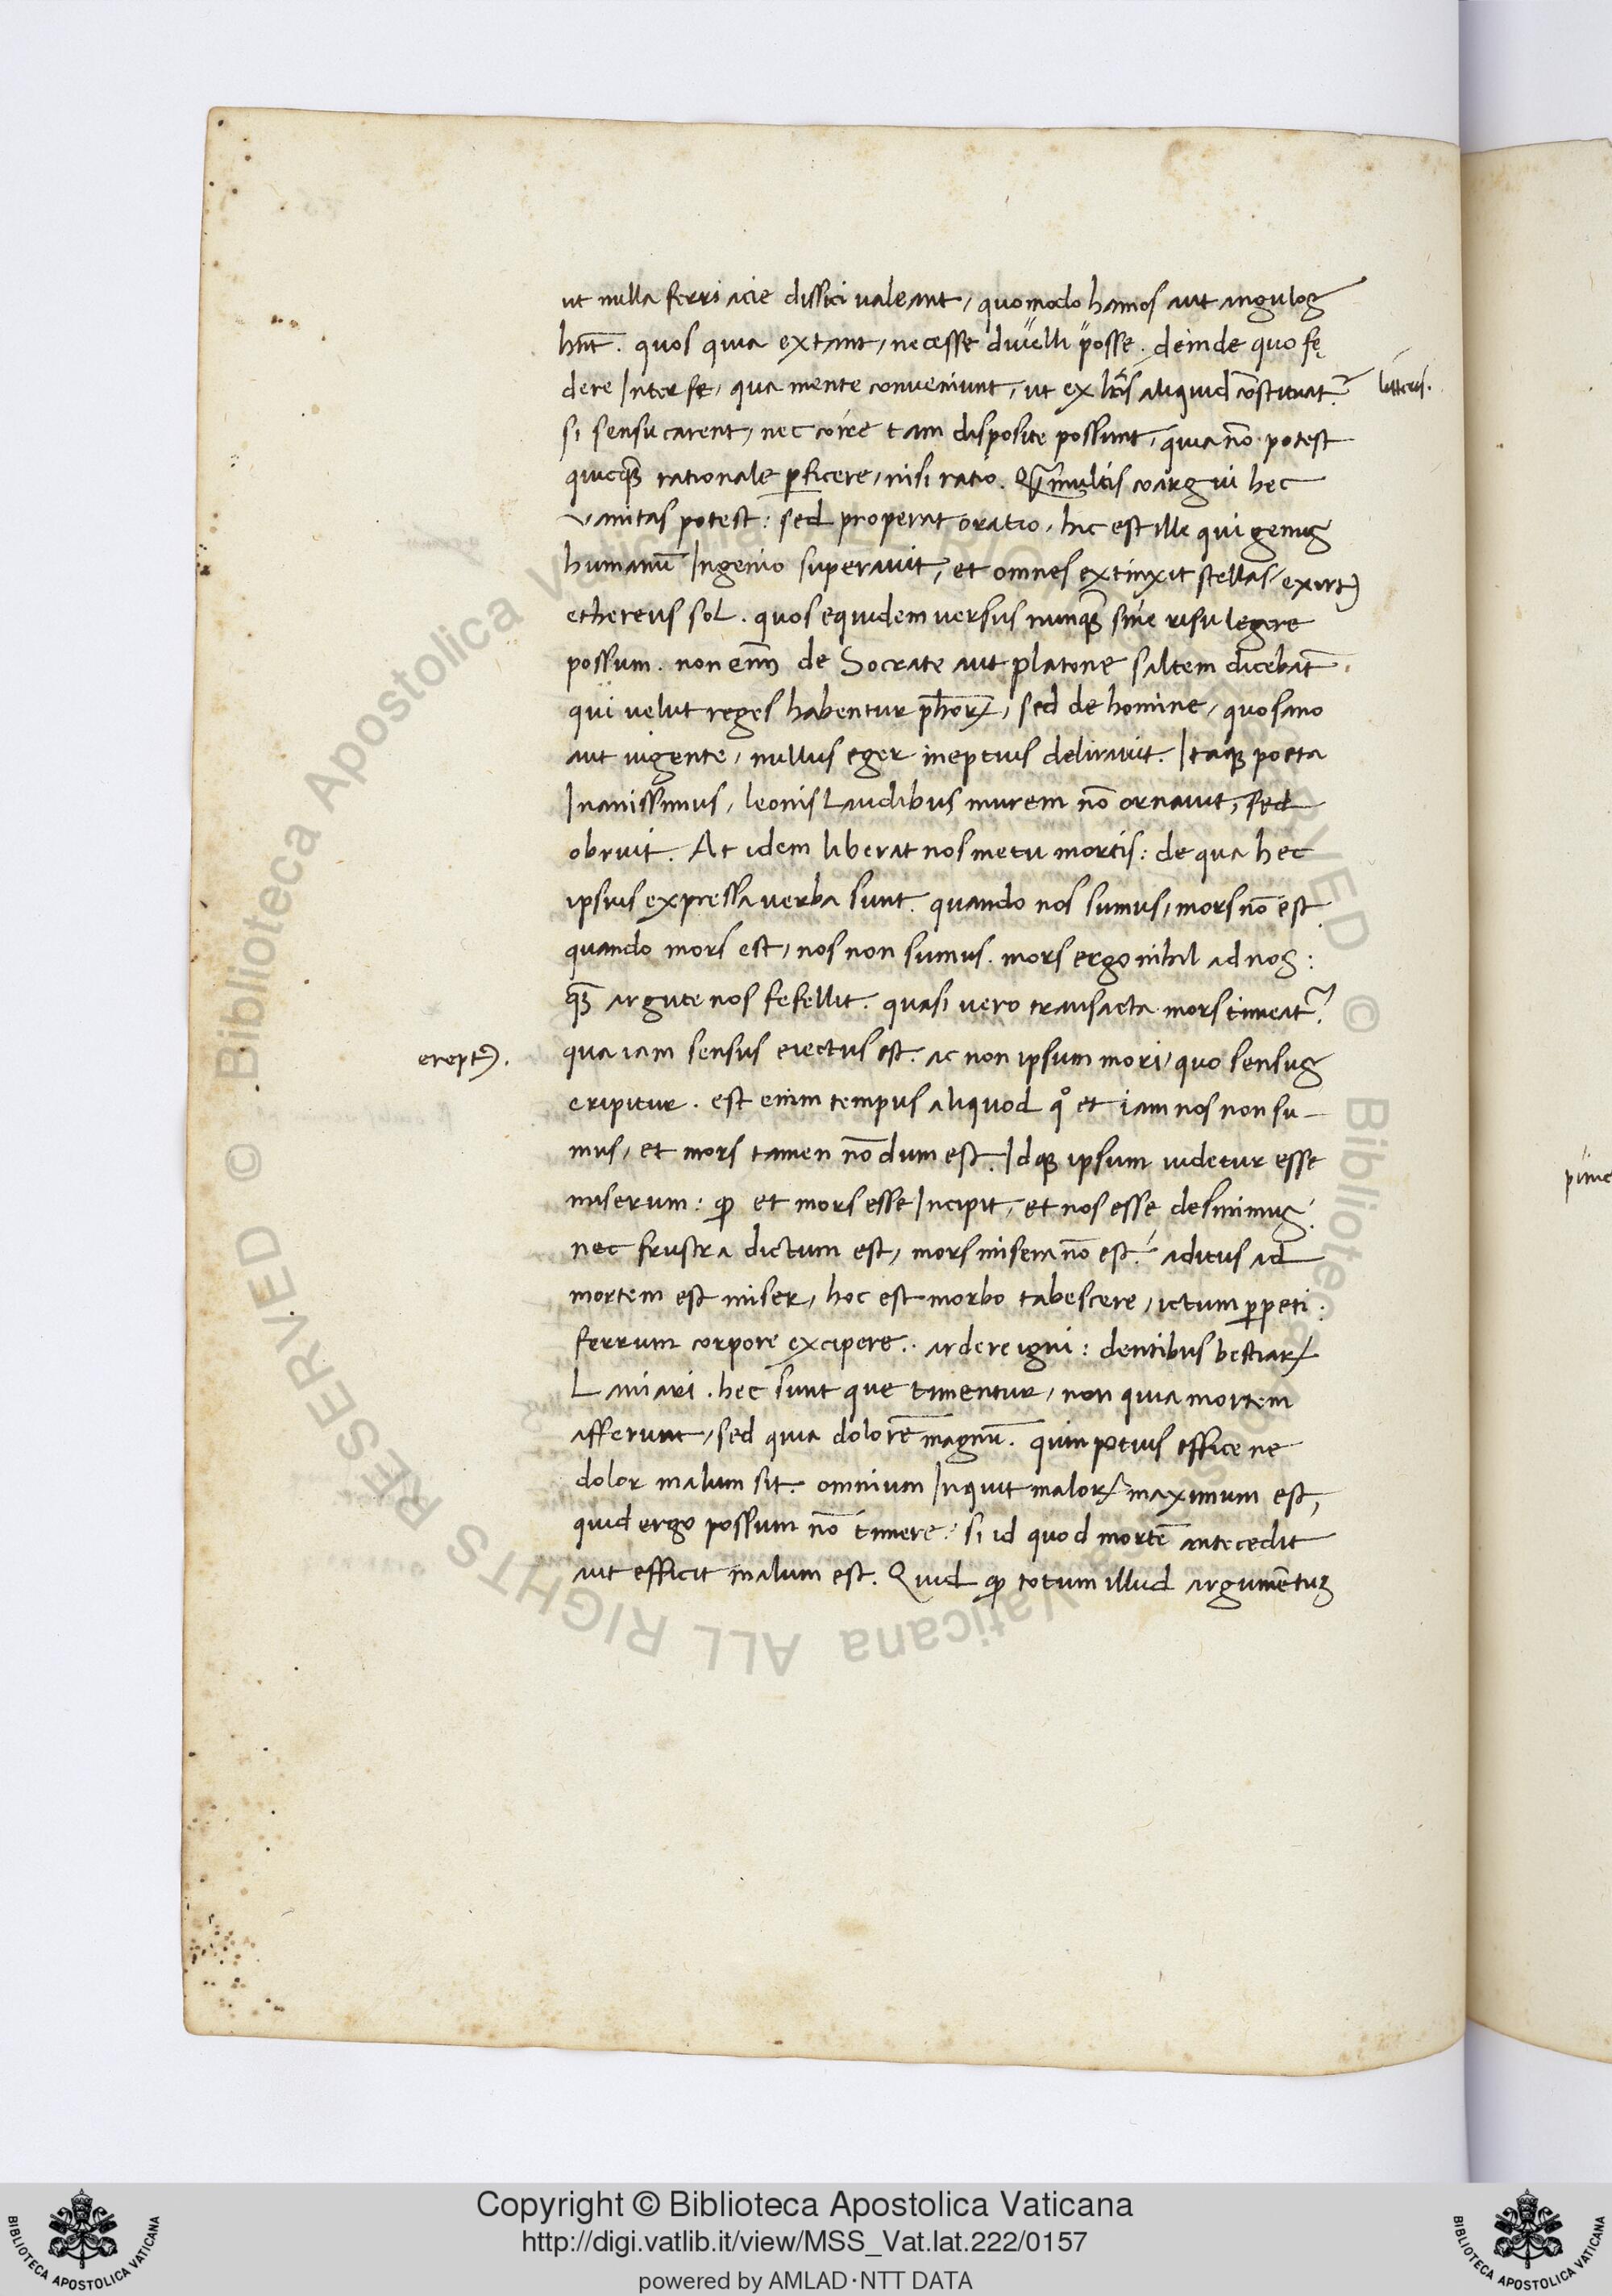 ut nulla ferri acie dissici valeant, quomodo hamos aut angulos
hñt. quos quia extant, necesse diuelli posse. deinde quo fę
dere Inter se, qua mente conveniunt, ut ex lr̃is aliquid cõstituat̃?
litteris.
si sensu carent, nec coire tam disposite possunt, quia nõ potest
quicq̃ rationale ꝑficere, nisi ratio. Q̃ multis coargui hec
vanitas potest: sed properat oratio, hic est ille qui genus
humanũ Ingenio superavit, et omnes extinxit stellas, exortꝰ
ethereus sol. quos equidem versus nunq̃ sine risu legere
possum. non enĩ de Socrate aut platone saltem dicebat̃.
qui velut reges habentur ph̃orꝝ, sed de homine, quo sano
aut uigente, nullus eger ineptius deliravit. Itaqꝫ poeta
Inanissimus, leonis Laudibus murem nõ ornavit, sed
obruit. At idem liberat nos metu mortis: de qua hec
ipsius expressa verba sunt. quando nos sumus, mors nõ est.
quando mors est, nos non sumus. mors ergo nihil ad nos:
q̃ argute nos fefellit. quasi vero transacta mors timeat̃?
ereptꝰ.
qua iam sensus eiectus est. ac non ipsum mori, quo sensus
eripitur. est enim tempus aliquod qͦ et iam nos non su-
mus, et mors tamen nõdum est. Idqꝫ ipsum uidetur esse
miserum: ꝙ et mors esse Incipit, et nos esse desinimus.
nec frustra dictum est, mors misera nõ est? aditus ad
mortem est miser, hoc est morbo tabescere, ictum ꝑpeti.
ferrum corpore excipere. ardere igni: dentibus bestiarꝝ
Laniari. hec sunt que timentur, non quia mortem
afferunt, sed quia dolorẽ magnũ. quin potius effice ne
dolor malum sit. omnium Inquit malorꝝ maximum est,
quid ergo possum nõ timere. si id quod mortẽ antecedit
aut efficit malum est. Quid ꝙ totum illud argumẽtuꝫ
Copyright © Biblioteca Apostolica Vaticana
http://digi.vatlib.it/view/MSS_Vat.lat.222/0157
powered by AMLAD·NTT DATA